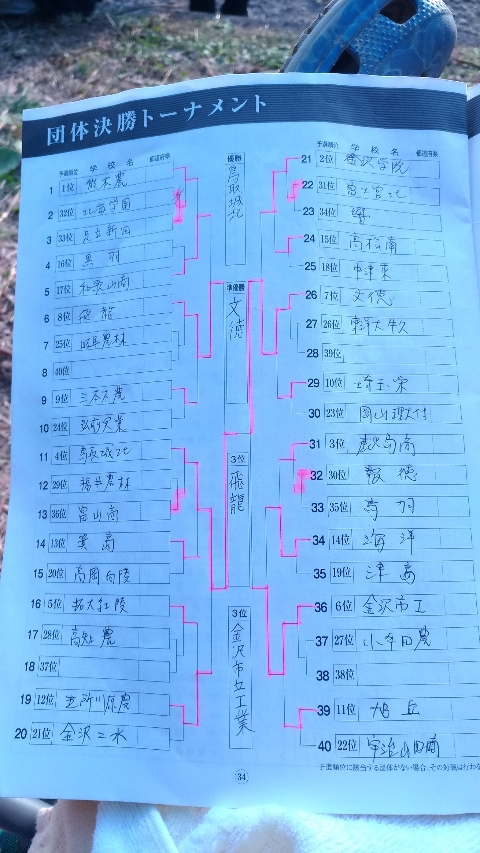 団体決勝トーナメント
予選順位 学校名 都道府県
1 1位
2 32位 北海学園
3 33位 足立新田
4 16位 黒羽
5 17位 和歌山商
6 8位 飛龍
7 25位 岐阜農林
8 40位
9 9位 三本木農
10 24位 弘前実業
11 4位 鳥取城北
12 29位 福井農林
13 36位 富山商
14 13位 箕島
15 20位 高岡向陵
16 5位 拓大紅陵
17 28位 高知農
18 37位
19 12位 五所川原農
20 21位 金沢二水
優勝
鳥取城北
準優勝
文徳
3位
飛龍
3位
金沢市立工業
予選順位 学校名 都道府県
21 2位 金沢学院
22 31位 富士宮北
23 34位
24 15位 高松南
25 18位 中津東
26 7位 文徳
27 26位 東洋大牛久
28 39位
29 10位 埼玉栄
30 23位 岡山理大付
31 3位 鹿児島商
32 30位 報徳
33 35位 鳥羽
34 14位 海洋
35 19位 津島
36 6位 金沢市工
37 27位 小牛田農
38 38位
39 11位 旭丘
40 22位 宇治山田商
予選順位に該当する団体がない場合、その対戦は行わな
34